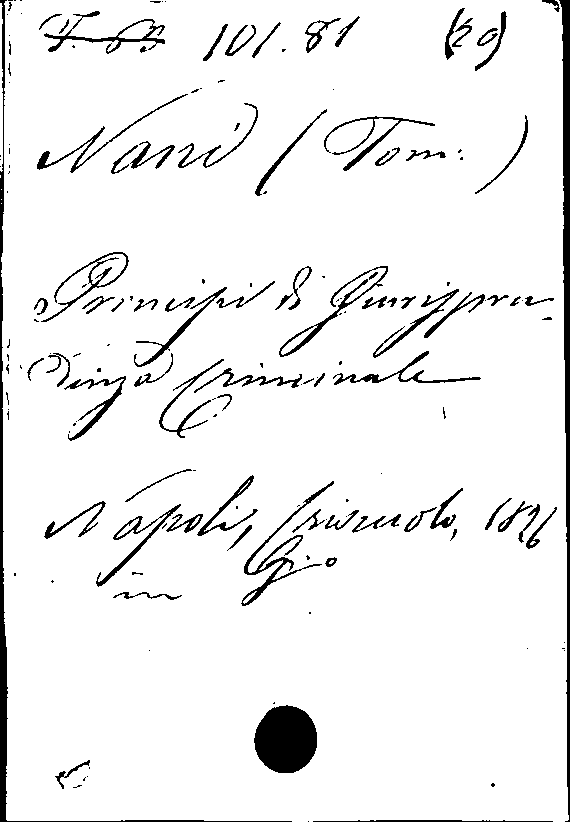 F. B 101.81 (29)
Nani (Tom:)
Principi di Giurispru-
denza Criminale
Napoli, Criscuolo, 1826
in 8º